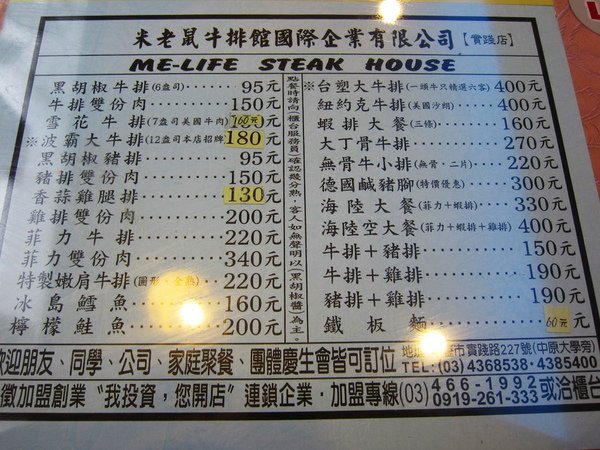 米老鼠牛排館國際企業有限公司【實踐店】
ME-LIFE STEAK HOUSE
黑胡椒牛排(6盎司)95元
牛排雙份肉150元
雪花牛排(7盎司美國牛肉)160元
※波霸大牛排(12盎司本店招牌)180元
黑胡椒豬排95元
豬排雙份肉150元
香蒜雞腿排130元
雞排雙份肉200元
菲力牛排220元
菲力雙份肉340元
特製嫩肩牛排(圖形、全熟)220元
冰島鱈魚160元
檸檬鮭魚200元
點餐時請向櫃台服務員確認幾分熟,客人如無聲明以(黑胡椒醬)為主。
※台塑大牛排(一頭牛只精選六客)400元
紐約克牛排(美國沙朗)400元
蝦排大餐(三條)160元
大丁骨牛排270元
無骨牛小排(無骨·二片)220元
德國鹹豬腳(特價優惠)300元
海陸大餐(菲力+蝦排)330元
海陸空大餐(菲力+蝦排+雞排)400元
牛排+豬排150元
牛排+雞排190元
豬排+雞排190元
鐵板麵60元
歡迎朋友、同學、公司、家庭聚餐、團體慶生會皆可訂位
市實踐路227號(中原大學旁)
TEL:(03)4368538·4385400
徵加盟創業"我投資,您開店"連鎖企業·加盟專線(03)466-1992
0919-261-333或洽櫃台